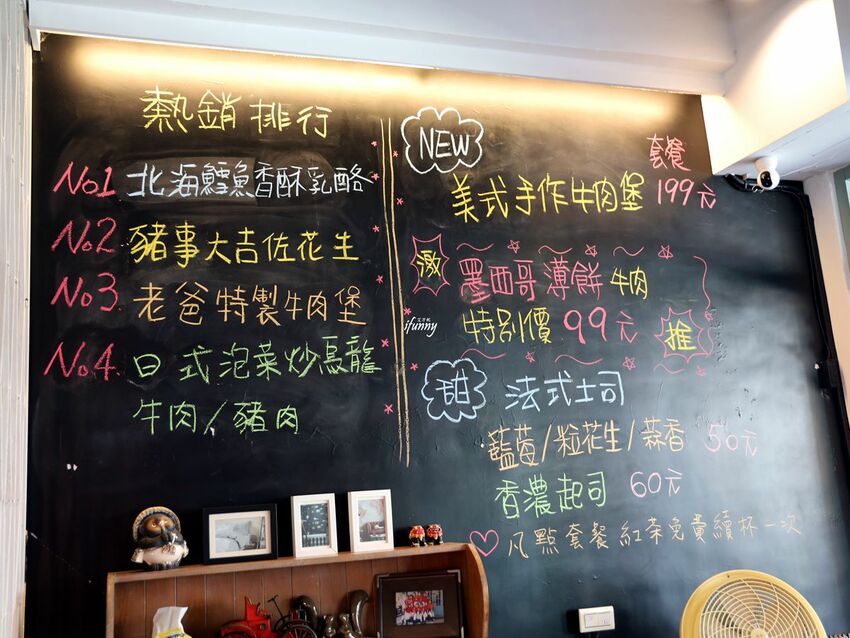 熱銷排行
No1 北海鱈魚香酥乳酪
No2 豬事大吉佐花生
No3. 老爸特製牛肉堡
No4. 日式泡菜炒烏龍
牛肉/豬肉
NEW
套餐
美式手作牛肉堡 199元
激 墨西哥薄餅牛肉
特別價 99元 推
甜 法式土司
藍莓/粒花生/蒜香 50元
香濃起司 60元
凡點套餐紅茶免費續杯一次
ifunny